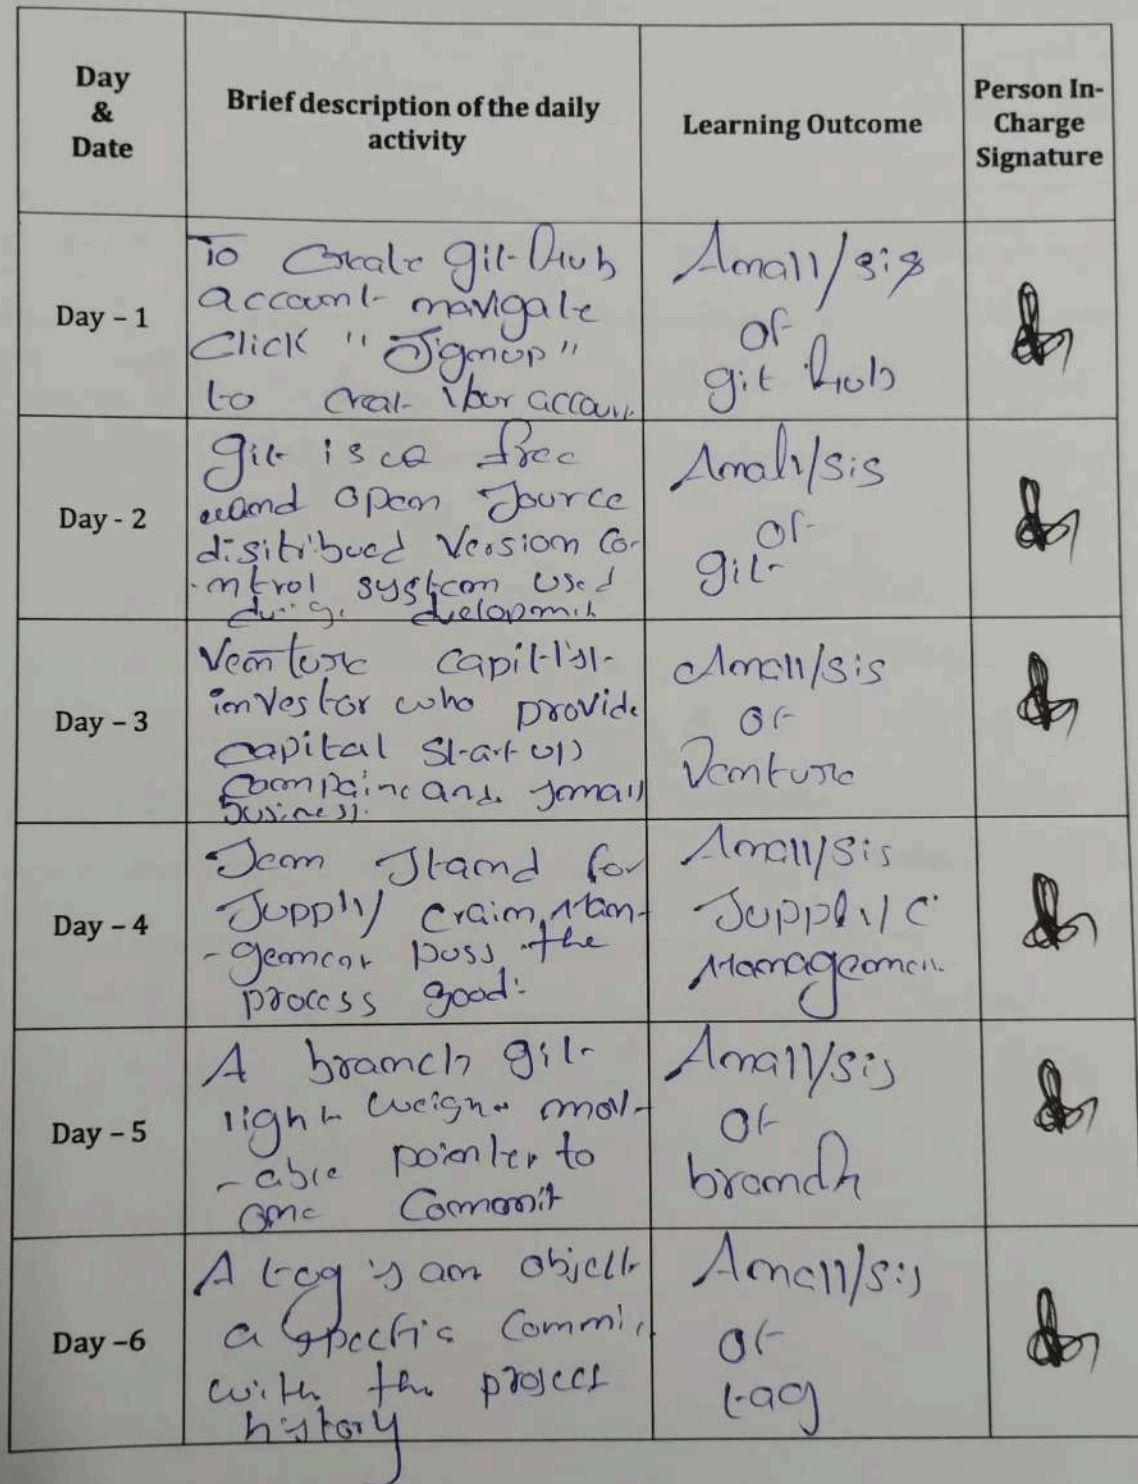 Day
&
Date
Brief description of the daily
activity
Learning Outcome
Person In-
Charge
Signature
Day – 1
To Create git hub
account navigate
Click "Signup"
to creat your accoun
Analysis
of
git hub
Day - 2
Git is a free
and open source
disitribued Version Co-
-ntrol system used
Analysis
of
git
Day – 3
Venture capitlist
investor who provide
capital Start up
and small
business.
Analysis
of
Venture
Day – 4
Scm Stand for
Supply
the
process good
Analysis
Supply C
Management
Day – 5
A branch git
light weight mov-
-able pointer to
one Commit
Analysis
of
branch
Day –6
A tag is an object
a specfic commit
with the project
history
Analysis
of
tag